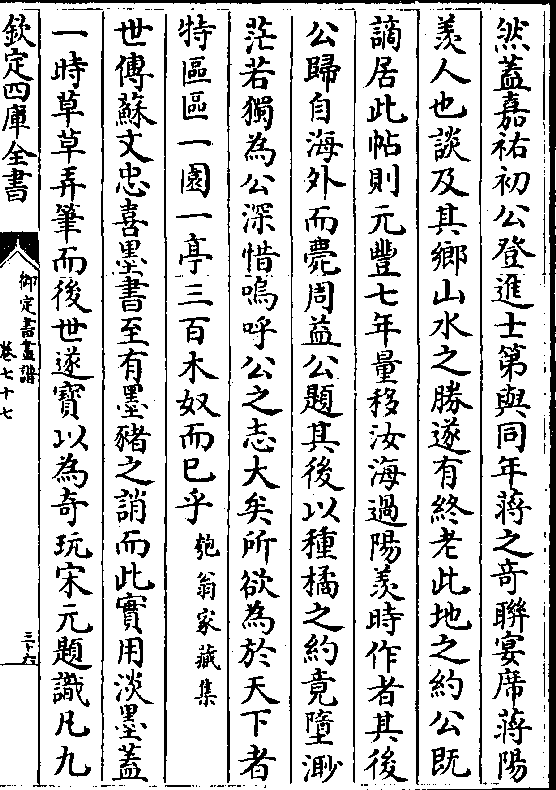 然蓋嘉祐初公登進士第與同年蔣之奇聯宴席蔣陽
羨人也談及其鄉山水之勝遂有終老此地之約公既
謫居此帖則元豐七年量移汝海過陽羨時作者其後
公歸自海外而薨周益公題其後以種橘之約竟墮渺
茫若獨為公深惜嗚呼公之志大矣所欲為於天下者
特區區一園一亭三百木奴而已乎匏翁家藏集
世傳蘇文忠喜墨書至有墨豬之誚而此實用淡墨蓋
一時草草弄筆而後世遂寶以為奇玩宋元題識凡九
欽定四庫全書
御定書畫譜
卷七十七
三十六